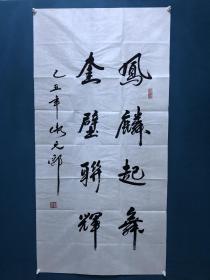 鳳麟起舞
奎壁聯輝
乙丑年